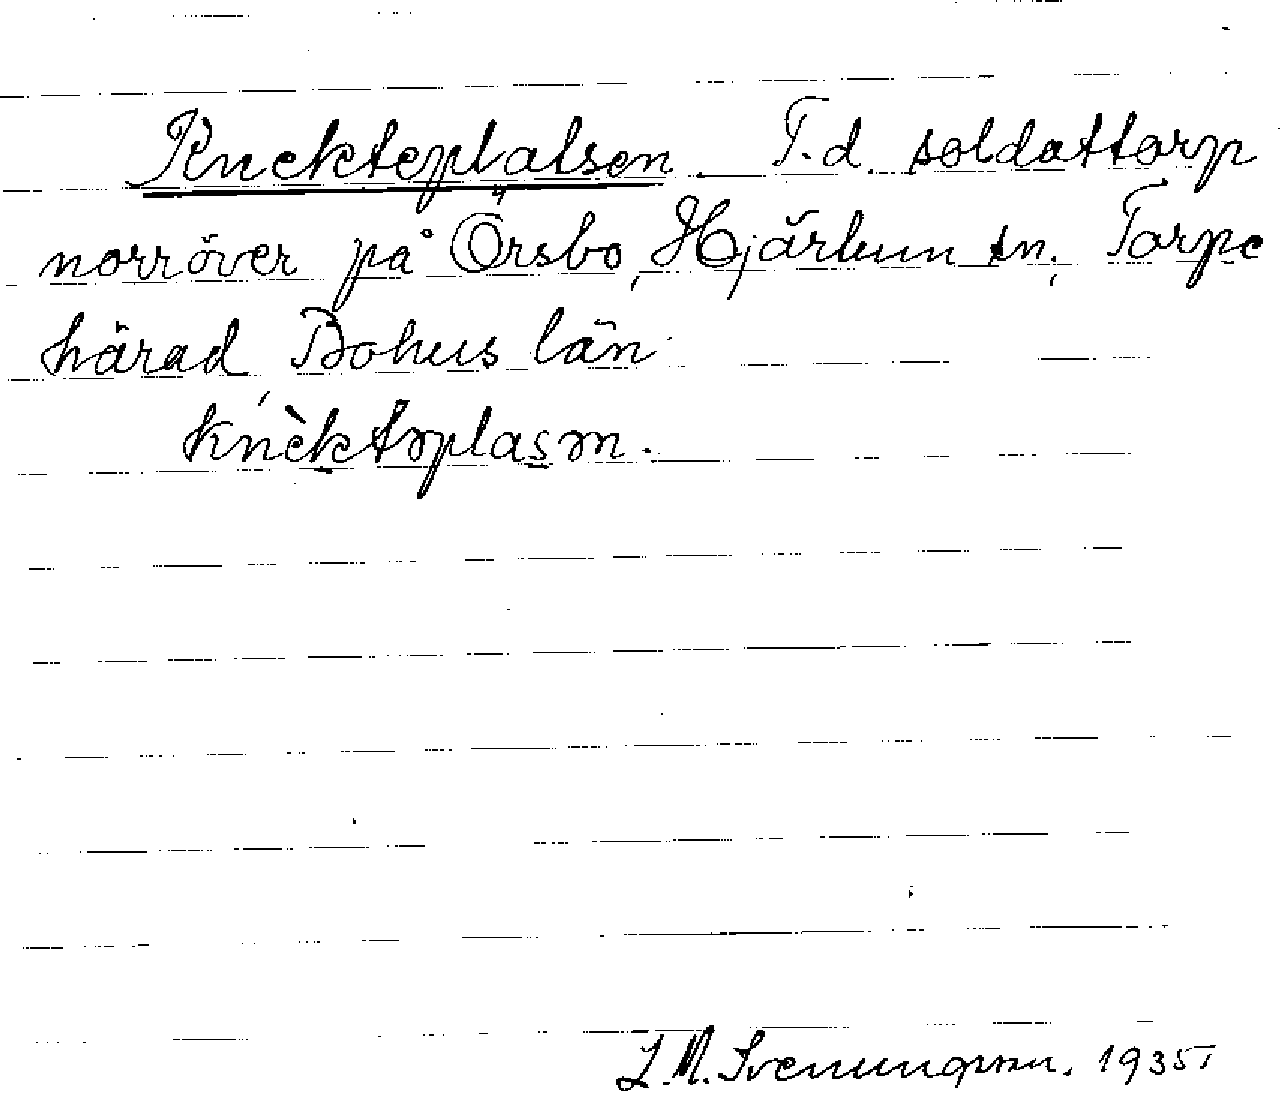 Knekteplatsen. F.d. soldattorp
norröver på Örsbo, Hjärtum sn, Torpe
härad, Bohus län
knèktəplasən.
L.M. Svenungsson. 1935